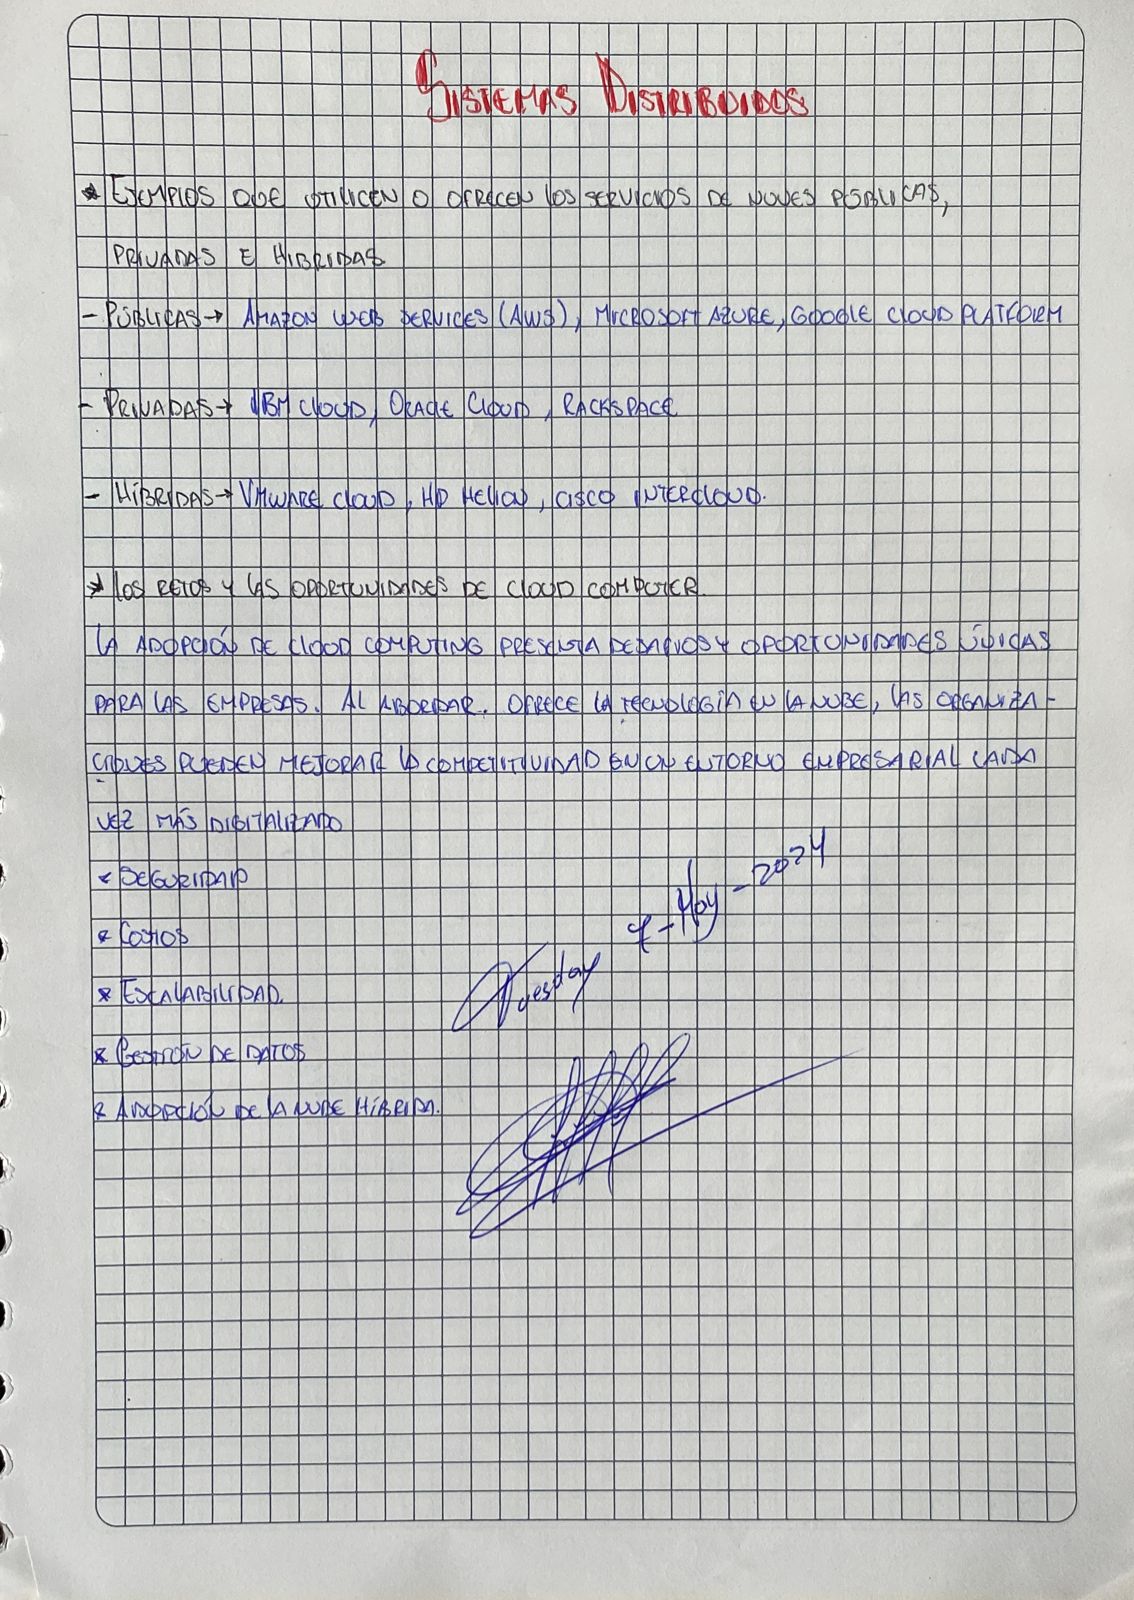 SISTEMAS DISTRIBUIDOS
* EJEMPLOS QUE UTILICEN O OFRECEN LOS SERVICIOS DE NUVES PÚBLICAS,
PRIVADAS E HIBRIDAS
- PÚBLICAS → AMAZON WEB SERVICES (AWS), MICROSOFT AZURE, GOOGLE CLOUD PLATFORM
- PRIVADAS → IBM CLOUD, ORACLE CLOUD, RACKSPACE
- HÍBRIDAS → VMWARE CLOUD, HP HELION, CISCO INTERCLOUD.
* LOS RETOS Y LAS OPORTUNIDADES DE CLOUD COMPUTER.
LA ADOPCIÓN DE CLOUD COMPUTING PRESENTA DESAFIOS Y OPORTUNIDADES ÚNICAS
PARA LAS EMPRESAS. AL ABORDAR. OFRECE LA TECNOLOGÍA EN LA NUBE, LAS ORGANIZA-
CIONES PUEDEN MEJORAR LA COMPETITIVIDAD EN UN ENTORNO EMPRESARIAL CADA
VEZ MÁS DIGITALIZADO
* SEGURIDAD
* COSTOS
* ESCALABILIDAD.
* GESTIÓN DE DATOS
* ADOPCIÓN DE LA NUBE HÍBRIDA.
Tuesday 7-May-2024